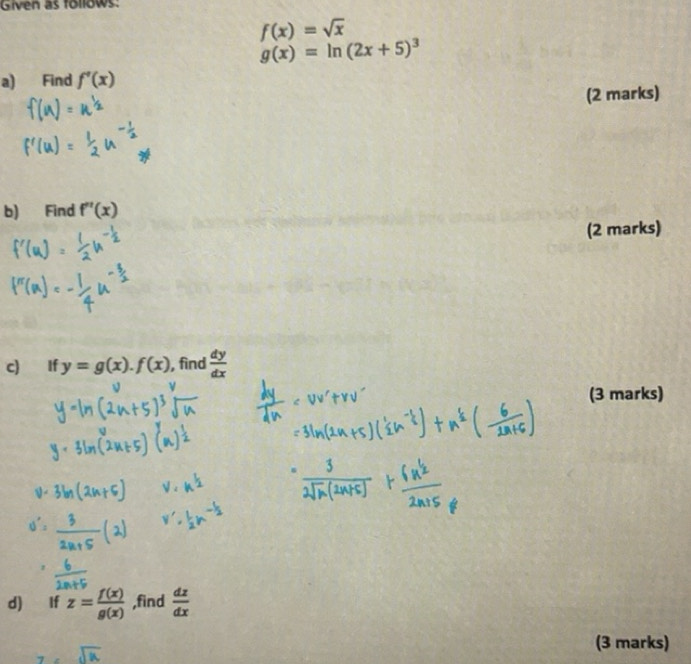 Given as follows:
f(x) = √x
g(x) = ln (2x + 5)³
a) Find f'(x)
(2 marks)
f(x) = x^½
f'(x) = ½ x^-½
b) Find f''(x)
(2 marks)
f'(x) = ½ x^-½
f''(x) = -¼ x^-3/2
c) If y = g(x). f(x), find dy/dx
(3 marks)
y = ln (2x+5)³ √x
y = 3ln (2x+5) (x)^½
u = 3ln (2x+5) v = x^½
u' = 3/(2x+5) (2) v' = ½ x^-½
= 6/(2x+5)
dy/dx = uv' + vu'
= 3ln(2x+5)(½x^-½) + x^½ (6/(2x+5))
= 3/(2√x(2x+5)) + 6x^½/(2x+5)
d) If z = f(x)/g(x) ,find dz/dx
(3 marks)
z = √x